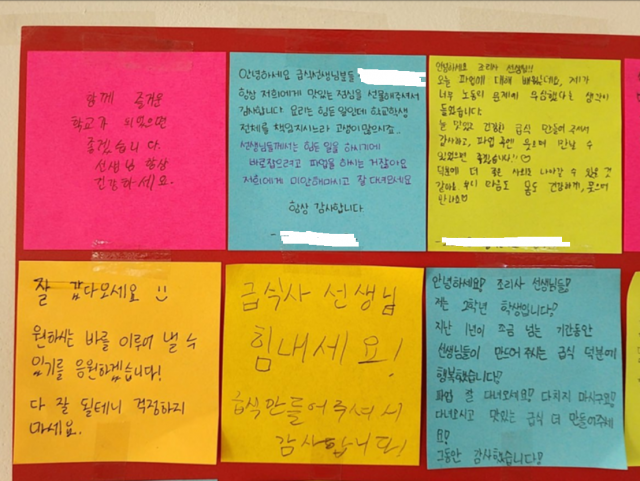 함께 즐거운
학교가 되었으면
좋겠습니다.
선생님 항상
건강하세요.
안녕하세요 급식선생님분들
항상 저희에게 맛있는 점심을 선물해주셔서
감사합니다 요리는 힘든 일인데 학교학생
전체를 책임지시느라 고생이많으시죠..
선생님들께서는 힘든 일을 하시기에
바로잡으려고 파업을 하시는 거잖아요
저희에게 미안해마시고 잘 다녀오세요
항상 감사합니다
안녕하세요 조리사 선생님!!
오늘 파업에 대해 배웠는데, 제가
너무 노동의 문제에 무심했다는 생각이
들었습니다.
늘 맛있고 건강한 급식 만들어 주셔서
감사하고, 파업 후엔 웃으며 만날 수
있었으면 좋겠습니다!!♡
덕분에 더 좋은 사회로 나아갈 수 있을 것
같아요 부디 마음도 몸도 건강하게, 웃으며
만나요♡
잘 갔다오세요 :)
원하시는 바를 이루어 낼 수
있기를 응원하겠습니다!
다 잘 될테니 걱정하지
마세요.
급식사 선생님
힘내세요!
급식만들어주셔서
감사합니다!
안녕하세요? 조리사 선생님들?
저는 2학년 학생입니다?
지난 1년이 조금 넘는 기간동안
선생님들이 만드어 주시는 급식 덕분에
행복했습니다?
파업 잘 다녀오세요? 다치지 마시구요?
다녀오시고 맛있는 급식 더 만들어주세
요?
그동안 감사했습니다?